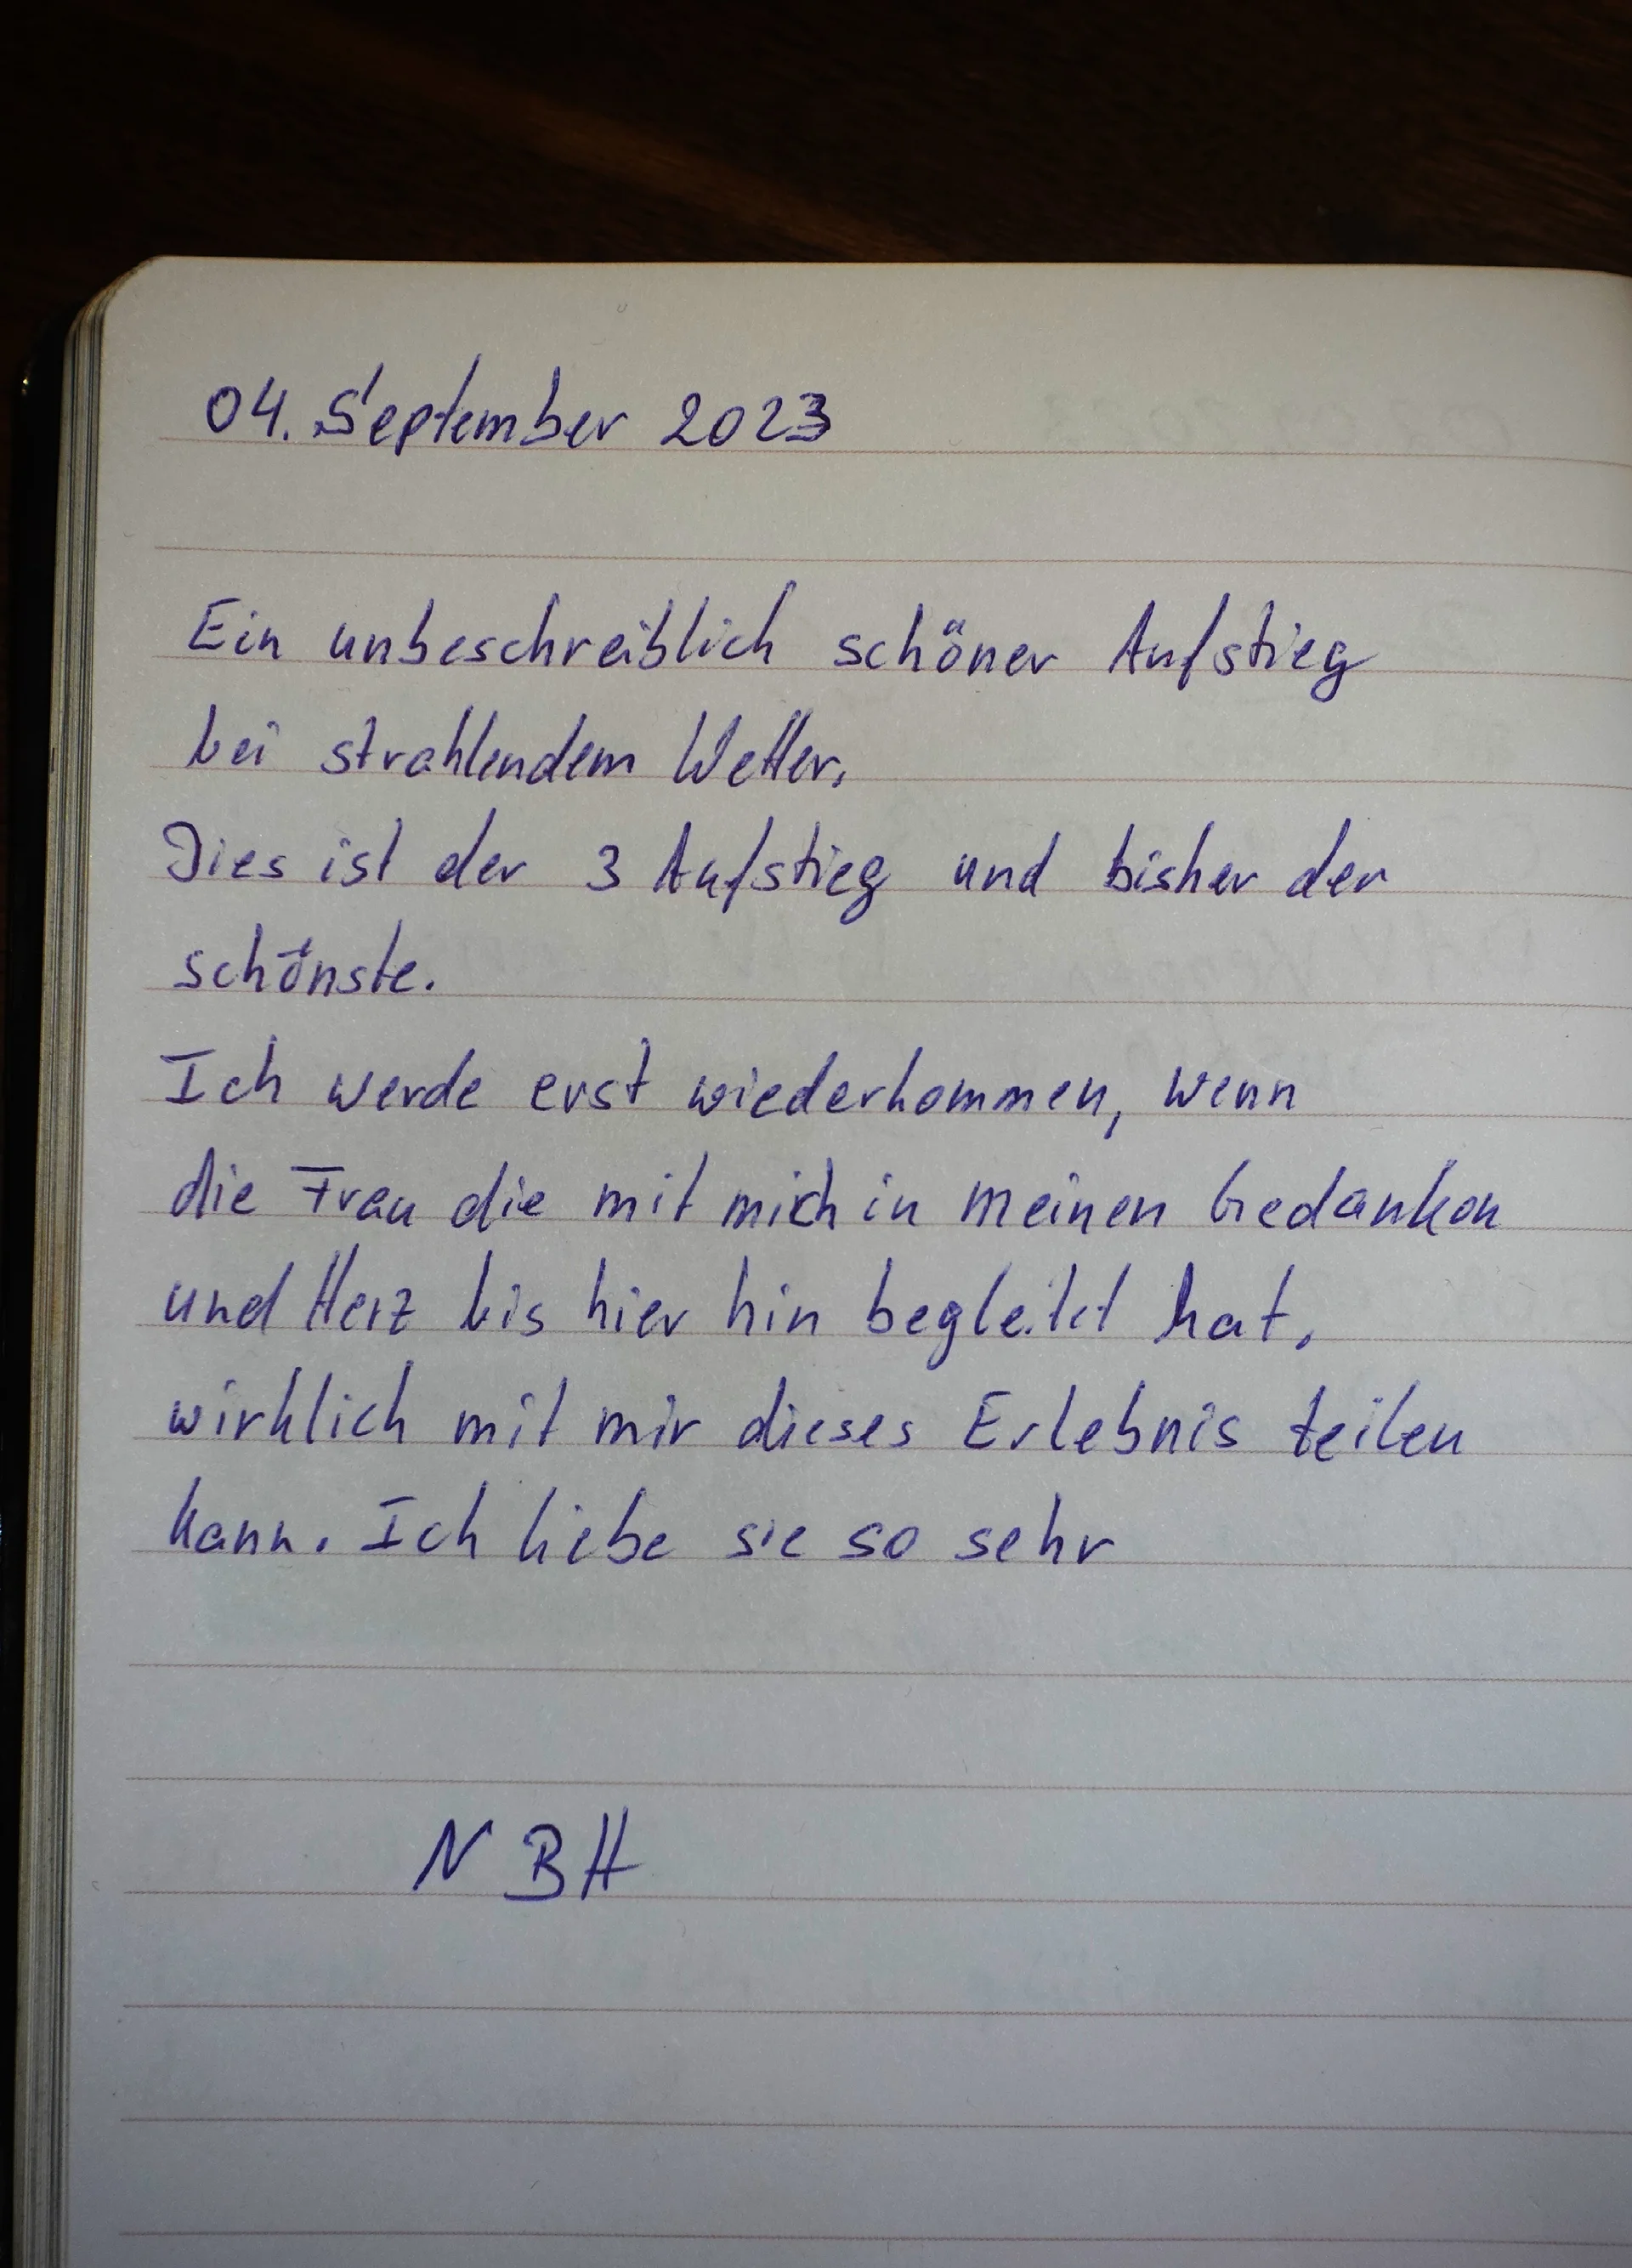 04. September 2023
Ein unbeschreiblich schöner Aufstieg
bei strahlendem Wetter.
Dies ist der 3 Aufstieg und bisher der
schönste.
Ich werde erst wiederkommen, wenn
die Frau die mit mich in meinen Gedanken
und Herz bis hier hin begleitet hat,
wirklich mit mir dieses Erlebnis teilen
kann. Ich liebe sie so sehr
N B H